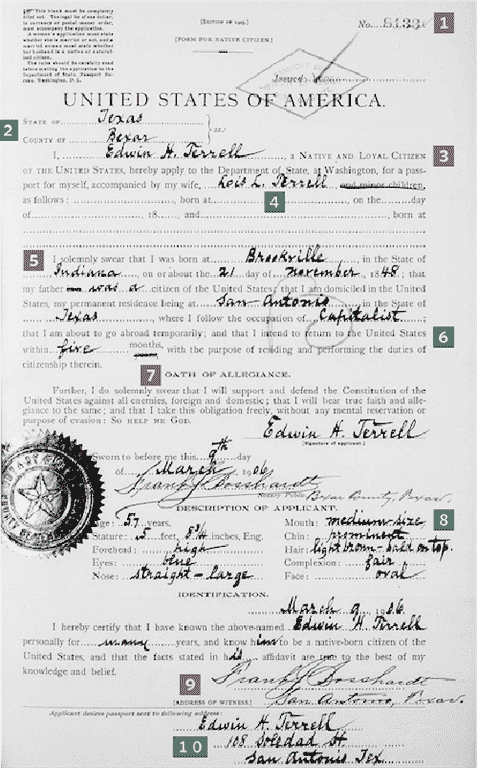 This blank must be completely
filled out. The legal fee of one dollar,
in currency or postal money order,
must accompany the application.
A woman's application must state
whether she is married or not, and a
married woman must state whether
her husband is a native or natural-
ized citizen.
The rules should be carefully read
before mailing the application to the
Department of State, Passport Bu-
reau, Washington, D. C.
[EDITION OF 1905.]
[FORM FOR NATIVE CITIZEN.]
No.
1
Issued
UNITED STATES OF AMERICA.
2
STATE OF Texas
COUNTY OF Bexar } ss:
I, Edwin H. Terrell, a NATIVE AND LOYAL CITIZEN
3
OF THE UNITED STATES, hereby apply to the Department of State, at Washington, for a pass-
port for myself, accompanied by my wife, Lois L. Terrell and minor children,
as follows: born at , on the day
4
of , 18 , and born at
5
I solemnly swear that I was born at Brookville, in the State of
Indiana, on or about the 21 day of November, 1848, that
my father was a citizen of the United States; that I am domiciled in the United
States, my permanent residence being at San Antonio, in the State of
Texas, where I follow the occupation of Capitalist;
that I am about to go abroad temporarily; and that I intend to return to the United States
6
within five months, with the purpose of residing and performing the duties of
citizenship therein.
7
OATH OF ALLEGIANCE.
Further, I do solemnly swear that I will support and defend the Constitution of the
United States against all enemies, foreign and domestic; that I will bear true faith and alle-
giance to the same; and that I take this obligation freely, without any mental reservation or
purpose of evasion: SO HELP ME GOD.
Edwin H. Terrell
[Signature of applicant.]
Sworn to before me this 9th day
of March, 1906
Frank J. Bosshardt
Notary Public Bexar County, Texas.
DESCRIPTION OF APPLICANT.
8
Age: 57 years. Mouth: medium-size
Stature: 5 feet, inches, Eng. Chin: prominent
Forehead: high Hair: light brown - bald on top.
Eyes: blue Complexion: fair
Nose: straight - large Face: oval
IDENTIFICATION.
March 9 1906
I hereby certify that I have known the above-named Edwin H. Terrell
personally for many years, and know him to be a native-born citizen of the
United States, and that the facts stated in his affidavit are true to the best of my
knowledge and belief.
9
Frank J. Bosshardt
[ADDRESS OF WITNESS.] San Antonio, Texas.
Applicant desires passport sent to following address:
Edwin H. Terrell
10
108 Soledad St.
San Antonio Tex